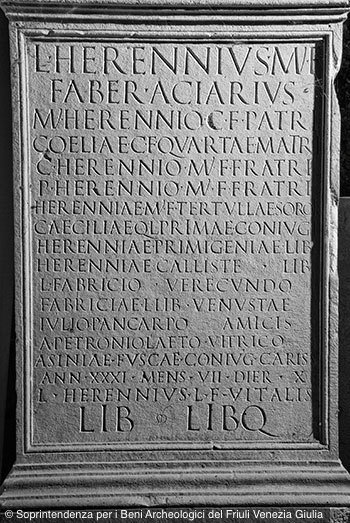 L·HERENNIVS M'F
FABER·ACIARIVS
M'HERENNIO C·F·PATRI
COELIAE C F QVARTAE MATRI
C·HERENNIO·M'F FRATRI
P·HERENNIO·M'F FRATRI
HERENNIAE M'F TERTVLLAE SORO
CAECILIAE Q L PRIMAE CONIVG
HERENNIAE PRIMIGENIAE LIB
HERENNIAE CALLISTE · LIB
L·FABRICIO VERECVNDO
FABRICIAE L LIB·VENVSTAE
IVLIO PANCARPO AMICIS
A PETRONIO LAETO·VITRICO
ASINIAE·FVSCAE·CONIVG·CARIS
ANN·XXXI·MENS·VII·DIER·X
L·HERENNIVS·L·F·VITALIS
LIB LIBQ
© Soprintendenza per i Beni Archeologici del Friuli Venezia Giulia